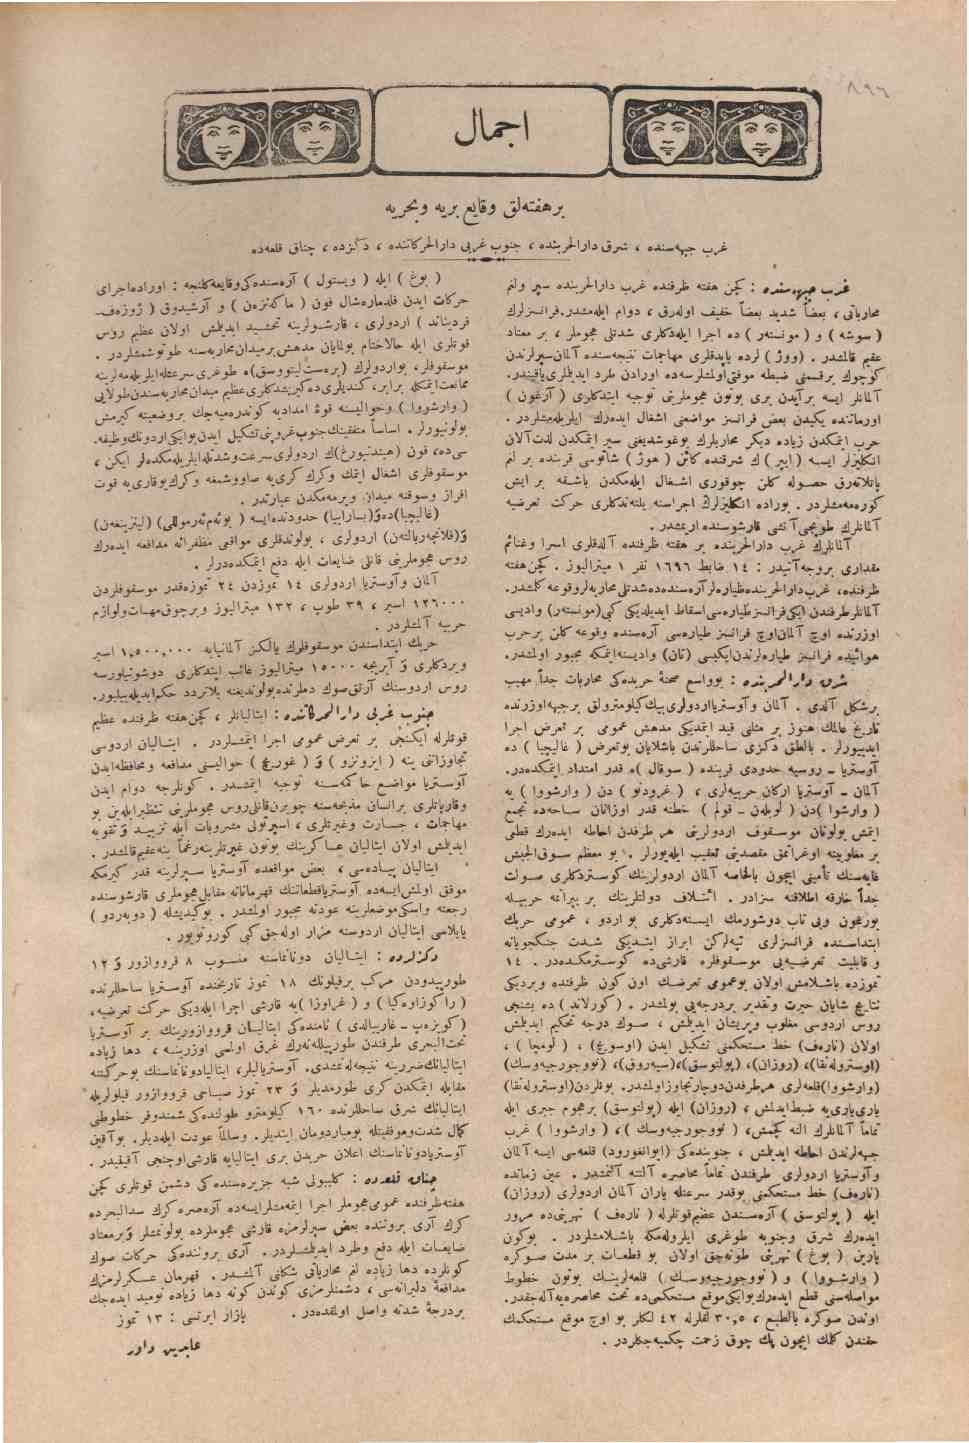 اجمال
برهفته‌لق وقايع بريه وبحريه
غرب جبهه‌سنده ، شرق دارالحربنده ، جنوب غربی دارالحركاتنده ، دكزده ، چناق قلعه‌ده
غرب جبهه‌سنده : كچن هفته ظرفنده غرب دارالحربنده سپر ولغم
محارباتی ، بعضاً شديد بعضاً خفيف اوله‌رق ، دوام ايله‌مشدر. فرانسزلرك
( سوشه ) و ( مونستهر ) ده اجرا ايله‌دكلری شدتلی هجوملر ، بر معتاد
عقيم قالمشدر . ( ووژ ) لرده ياپدقلری مهاجمات نتيجه‌سنده آلمان سپرلرندن
كوچوك برقسمنی ضبطه موفق اولمشلرسه‌ده اورادن طرد ايديلمشلردر.
آلمانلر ايسه برآيدن بری بوتون هجوملرينی توجيه ايتدكلری ( آرغون )
اورماننده يكيدن بعض فرانسز مواضعنی اشغال ايده‌رك ايلريله‌مشلردر .
حرب ايتمكدن زياده ديكر محاربلرك بوغوشديغنی سير ايتمكدن لذت آلان
انكليزلر ايسه ( ايپر ) ك شرقنده كائن ( هوژ ) شاتوسی قربنده بر لغم
پاتلاته‌رق حصوله كلن چوقوری اشغال ايله‌مكدن باشقه بر ايش
كوره‌مه‌مشلردر . بوراده انكليزلرك اجراسنه يلتندكلری حركت تعرضيه
آلمانلرك طوپچی آتشی قارشوسنده اريمشدر.
آلمانلرك غرب دارالحربنده بر هفته ظرفنده آلدقلری اسرا وغنائم
مقداری بروجه آتيدر : ١٤ ضابط ١٦٩٦ نفر ١ ميتراليوز . كچن هفته
ظرفنده، غرب دارالحربنده طياره‌لر آره‌سنده‌ده شدتلی محاربه‌لر وقوعه كلمشدر.
آلمانلر طرفندن ايكی فرانسز طياره‌سی اسقاط ايديلديكی كبی (مونستهر) واديسی
اوزرنده اوچ آلمان اوچ فرانسز طياره‌سی آره‌سنده وقوعه كلن برحرب
هوائيده فرانسز طياره‌لرندن ايكيسی (تان) واديسنه اينمكه مجبور اولمشدر.
شرق دارالحربنده : بوواسع صحنهٔ حربده‌كی محاربات جداً مهيب
برشكل آلدی . آلمان وآوستريا اردولری بيك كيلومترولق برجبهه اوزرنده
تاريخ عالمك هنوز بر مثلنی قيد ايتمديكی مدهش عمومی بر تعرض اجرا
ايدييورلر . بالطق دكزی ساحللرندن باشلايان بوتعرض ( غاليچيا ) ده
آوستريا ـ روسيه حدودی قربنده ( سوقال )ه قدر امتداد ايتمكده‌در.
آلمان ـ آوستريا اركان حربيه‌لری ، ( غرودنو ) دن ( وارشووا ) يه
( وارشوا )دن ( لوبلن ـ قولم ) خطنه قدر اوزانان ساحه‌ده تجمع
ايتمش بولونان موسقوف اردولرينی هر طرفدن احاطه ايده‌رك قطعی
بر مغلوبيته اوغراتمق مقصدينی تعقيب ايله‌يورلر . بو معظم سوق الجيش
غايه‌سنك تأمينی ايچون بالخاصه آلمان اردولرينك كوستردكلری صولت
جداً خارقه اطلاقنه سزادر . ائتلاف دولتلرينك بر ييرانه حربيله
يورغون وبی تاب دوشورمك ايسته‌دكلری بو اردو ، عمومی حربك
ابتداسنده فرانسزلری تپه‌لركن ابراز ايتديكی شدت جنكجويانه
و قابليت تعرضيه‌يی موسقوفلره قارشی‌ده كوسترمكده‌در . ١٤
تموزده باشلامش اولان بوعمومی تعرضك اون كون ظرفنده ويرديكی
نتايج شايان حيرت وتقدير بردرجه‌يی بولمشدر. ( كورلاند ) ده بشنجی
روس اردوسی مغلوب وپريشان ايديلمش ، صوك درجه تحكيم ايدلمش
اولان (ناره‌ف) خط مستحكمنی تشكيل ايدن (اوسوغ) ، ( لومچا ) ،
(اوستروله‌نقا)، (روزان)، (پولتوسق)، (سيه‌روق)، (نووجورجيه‌وسك)
(وارشووا) قلعه‌لری هرطرفدن دوچار تجاوز اولمشدر. بونلردن (اوستروله‌نقا)
ياری ياری‌يه ضبط ايدلمش ، (روزان) ايله (پولتوسق) برهجوم جبری ايله
تماماً آلمانلرك النه كچمش، ( نووجورجيه‌وسك )، ( وارشووا ) غرب
جبهه‌لرندن احاطه ايديلمش ، جنوبنده‌كی (ايوانغورود) قلعه‌سی ايسه آلمان
وآوستريا اردولری طرفندن تماماً محاصره آلتنه آلنمشدر . عين زمانده
(ناره‌ف) خط مستحكمنی بوقدر سرعتله ياران آلمان اردولری (روزان)
ايله ( پولتوسق ) آره‌سندن عظيم قوتلرله ( ناره‌ف ) نهرينی‌ده مرور
ايده‌رك شرق وجنوبه طوغری ايلروله‌مكه باشلامشلردر . بوكون
يارين ( بوغ ) نهرينی طوته‌جق اولان بو قطعات بر مدت صوكره
( وارشووا ) و ( نووجورجيه‌وسك ) قلعه‌لرينك بوتون خطوط
مواصله‌سنی قطع ايده‌رك بوايكی موقع مستحكمی‌ده تحت محاصره‌يه آله‌جقدر.
اوندن صوكره بالطبع ، ٣٠,٥ لقلرله ٤٢ لكلر بو اوچ موقع مستحكمك
حقندن كلمك ايچون پك چوق زحمت چكميه‌جكلردر .
( بوغ ) ايله ( ويستول ) آره‌سنده‌كی وقايعه كلنجه : اوراده اجرای
حركات ايدن فلدماره‌شال فون ( ماكه‌نزه‌ن ) و آرشيدوق ( ژوزه‌ف ـ
فرديناند ) اردولری ، قارشولرينه تحشيد ايديلمش اولان عظيم روس
قوتلری ايله حالاختام بولمايان مدهش برميدان محاربه‌سنه طوتوشمشلردر .
موسقوفلر، بواردولرك (بره‌ست ليتووسق)ه طوغری سرعتله ايلريله‌مه‌لرينه
ممانعت ايتمكله برابر، كنديلری‌ده كيريشدكلری عظيم ميدان محاربه‌سندن طولايی
( وارشووا ) وحواليسنه قوهٔ امداديه كوندره‌ميه‌جك بروضعيته كيرمش
بولونيورلر . اساساً متفقينك جنوب غروپنی تشكيل ايدن بوايكی اردونك وظيفه‌
سی‌ده، فون (هيندنبورغ)ك اردولری سرعت وشدتله ايلريله‌مكده‌لر ايكن ،
موسقوفلری اشغال ايتمك وكرك كری‌يه صاووشمغه وكرك يوقاری‌يه قوت
افراز وسوقنه ميدان ويرمه‌مكدن عبارتدر .
(غاليچيا)ده و(بسارابيا) حدودنده‌ايسه ( بوئه‌م‌ئه‌رموللی) (لينزينغه‌ن)
و(فلانچه‌ربالته‌ن) اردولری ، بولوندقلری مواقعی مظفرانه مدافعه ايده‌رك
روس هجوملرينی قانلی ضايعات ايله دفع ايتمكده‌درلر .
آلمان وآوستريا اردولری ١٤ تموزدن ٢٤ تموزه‌قدر موسقوفلردن
١٢٦٠٠٠ اسير ، ٣٩ طوپ ، ١٣٢ ميتراليوز وبرچوق مهمات ولوازم
حربيه آلمشلردر .
حربك ابتداسندن موسقوفلرك يالكز آلمانيايه ١,٥٠٠,٠٠٠ اسير
ويردكلری و آيريجه ١٥٠٠٠ ميتراليوز غائب ايتدكلری دوشونيلورسه
روس اردوسنك آرتق صوك دملرنده بولونديغنه بلاتردد حكم ايديله‌بيلير.
جنوب غربی دارالحركاتنده : ايتاليانلر ، كچن هفته ظرفنده عظيم
قوتلرله ايكنجی بر تعرض عمومی اجرا ايتمشلردر . ايتاليان اردوسی
تجاوزاتنی ينه ( ايزونزو ) و ( غوريچ ) حواليسی مدافعه ومحافظه ايدن
آوستريا مواضع حاكمه‌سنه توجيه ايتمشدر . كونلرجه دوام ايدن
وقارپاتلری برانسان مذبحه‌سنه چويرن قانلی روس هجوملرينی تنظير ايله‌ين بو
مهاجمات ، جسارت وغيرتلری ، اسپرتولی مشروبات ايله تزييد و تقويه
ايديلمش اولان ايتاليان عساكرينك بوتون غيرتلرينه رغماً ينه عقيم قالمشدر .
ايتاليان پياده‌سی ، بعض مواقعده آوستريا سپرلرينه قدر كيرمكه
موفق اولمش ايسه‌ده آوستريا قطعاتنك قهرمانانه مقابل هجوملری قارشوسنده
رجعته واسكی موضعلرينه عودته مجبور اولمشدر . بوكيديشله ( دوبه‌ردو )
يايلاسی ايتاليان اردوسنه مزار اوله‌جق كبی كورونويور .
دكزلرده : ايتاليان دونانماسنه منسوب ٨ قرووازور و ١٢
طورپيدودن مركب برفيلونك ١٨ تموز تاريخنده آوستريا ساحللرنده
( راكوزاوه‌كيا ) و ( غراوزا )يه قارشی اجرا ايله‌ديكی حركت تعرضيه ،
( كويزه‌پ ـ غاريبالدی ) نامنده‌كی ايتاليان قرووازورينك بر آوستريا
تحت البحری طرفندن طورپيلله‌نه‌رك غرق اولمسی اوزرينه ، دها زياده
ايتاليانك ضررينه نتيجه‌لنمشدی. آوستريالیلر، ايتاليا دونانماسنك بوحركتنه
مقابله ايتمكدن كری طورمديلر و ٢٣ تموز صباحی قرووازور فيلولريله
ايتاليانك شرق ساحللرنده ١٦٠ كيلومترو طولنده‌كی شمندوفر خطوطنی
كمال شدت وموفقيتله بومباردومان ايتديلر. وسالماً عودت ايله‌ديلر. بو آقين
آوستريا دونانماسنك اعلان حربدن بری ايتاليايه قارشی اوچنجی آقينيدر .
چناق قلعه‌ده : كليبولی شبه جزيره‌سنده‌كی دشمن قوتلری كچن
هفته ظرفنده عمومی هجوملر اجرا ايتمه‌مشلر ايسه‌ده آره‌صره كرك سدالبحرده
كرك آری بروننده بعض سپرلرمزه قارشی هجوملرده بولونمشلر و برمعتاد
ضايعات ايله دفع وطرد ايديلمشلردر . آری بروننده‌كی حركات صوك
كونلرده دها زياده لغم محارباتی شكلنی آلمشدر . قهرمان عسكرلرمزك
مدافعهٔ دليرانه‌سی ، دشمنلرمزی كوندن كونه دها زياده نوميد ايده‌جك
بردرجهٔ شدته واصل اولمقده‌در . بازار ايرتسی : ١٣ تموز
عابدين داور